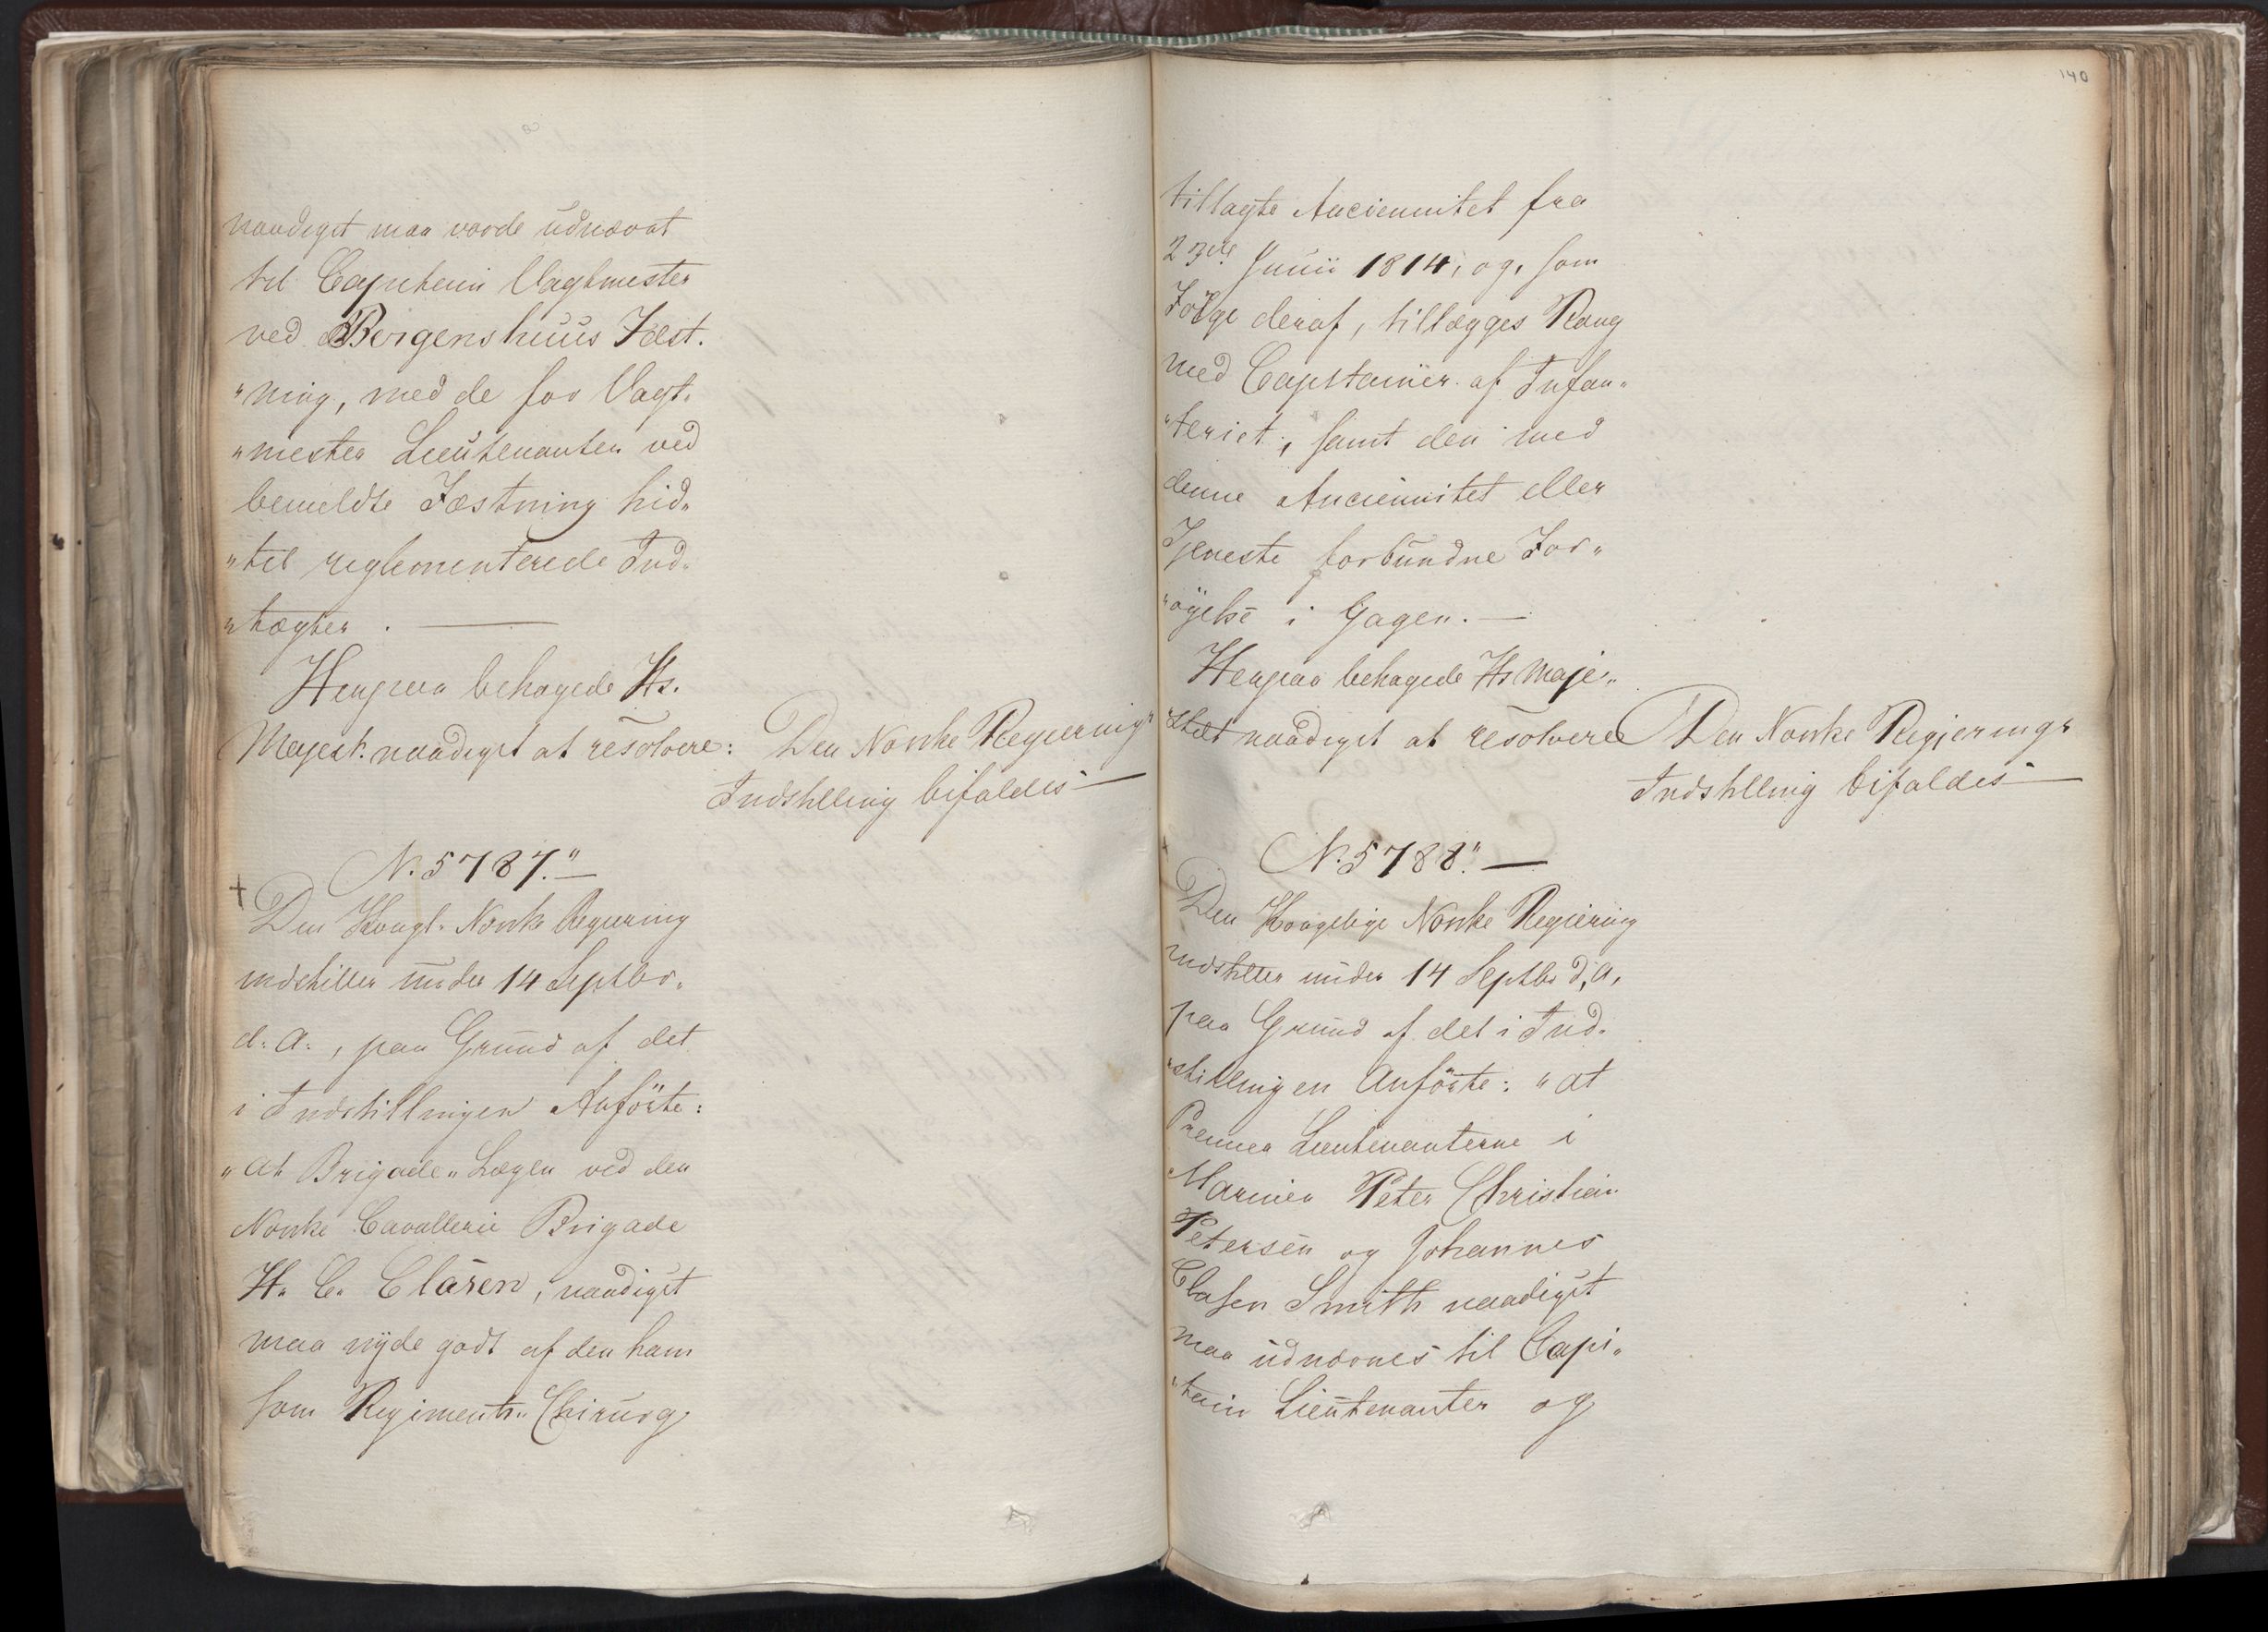 naadigst maa vorde udnævnt
til Capitain Vagtmester
ved Bergenshuus Fæst-
"ning, med de for Vagt-
"mester Lieutenanten ved
bemeldte Fæstning hid-
"til reglementerede Ind-
"tægter. —
Herpaa behagede Hs.
Majest. naadigst at resolvere:
Den Norske Regjerings
Indstilling bifaldes —
N. 5787." —
+
Den Kongl. Norske Regjering
indstiller under 14 Septbr.
d. A., paa Grund af det
i Indstillingen Anförte:
"at Brigade-Lægen ved den
Norske Cavallerie Brigade
H. C. Clasen, naadigst
maa nyde godt af den ham
som Regiments-Chirurg
140
tillagte Anciennitet fra
Junii 1814, og, som
Fölge deraf, tillægges Rang
med Capitainer af Infan-
"teriet, samt den med
denne Anciennitet eller
Tjeneste forbundne For-
"öyelse i Gagen. —
Herpaa behagede Hs Maje-
"stæt naadigst at resolvere
Den Norske Regjerings
Indstilling bifaldes —
N. 5788." —
+
Den Kongelige Norske Regjering
indstiller under 14 Septbr d. A.
paa Grund af det i Ind-
"stillingen Anförte: "at
Premier Lieutenanterne i
Marinen Peter Christian
Petersen og Johannes
Clasen Smith naadigst
maa udnævnes til Capi-
"tain Lieutenanter og